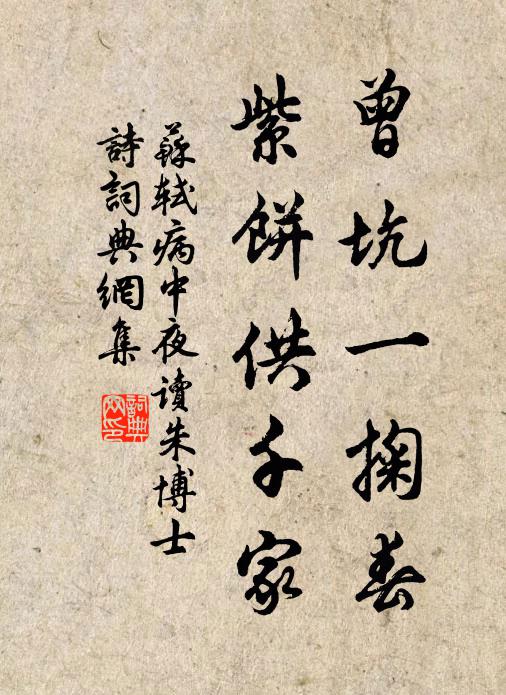 曾坑一掬春
紫餅供千家
蘇軾病中夜讀朱博士
詩詞典網集